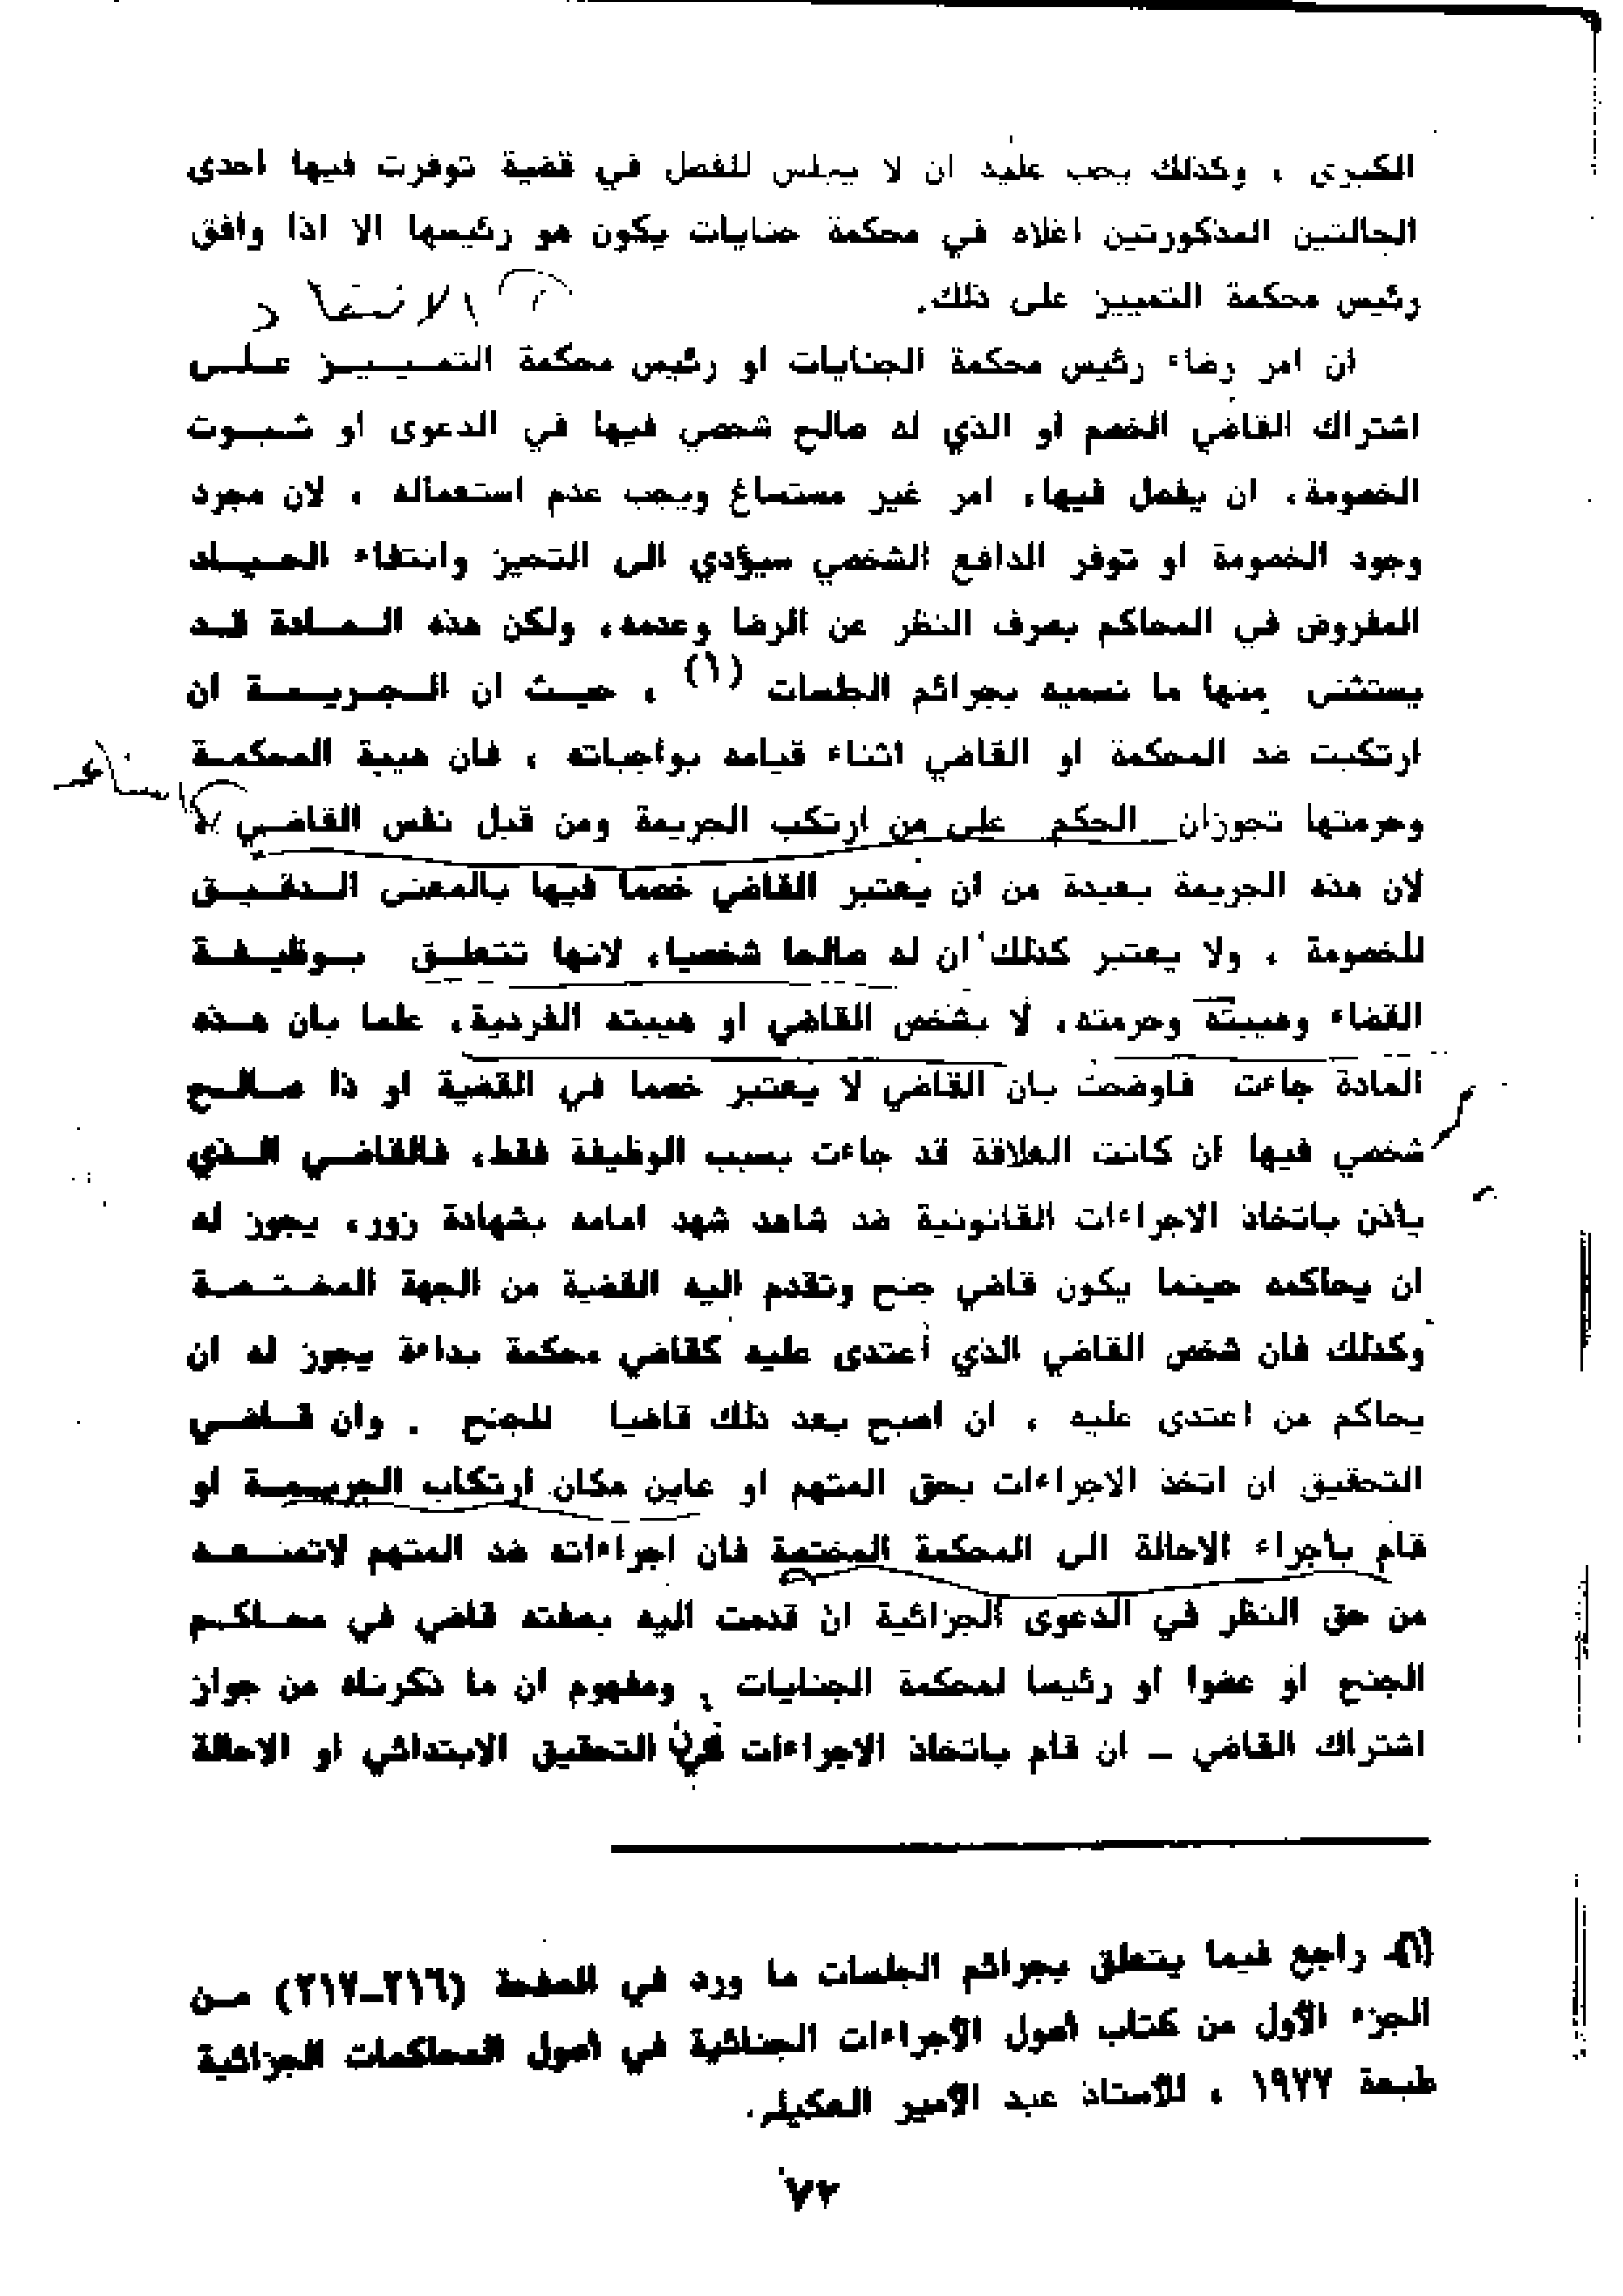 الكبرى ، وكذلك يجب عليه ان لا يجلس للفصل في قضية توفرت فيها احدى
الحالتين المذكورتين اعلاه في محكمة جنايات يكون هو رئيسها الا اذا وافق
رئيس محكمة التمييز على ذلك.
الانتقاد
ان امر رضاء رئيس محكمة الجنايات او رئيس محكمة التمـيـيـز عـلـى
اشتراك القاضي الخصم او الذي له صالح شخصي فيها في الدعوى او ثـبـوت
الخصومة، ان يفصل فيها، امر غير مستساغ ويجب عدم استعماله ، لان مجرد
وجود الخصومة او توفر الدافع الشخصي سيؤدي الى التحيز وانتفاء الحـيـاد
المفروض في المحاكم بصرف النظر عن الرضا وعدمه، ولكن هذه الـمـادة قـد
يستثنى منها ما نسميه بجرائم الجلسات (١) ، حيـث ان الـجـريـمـة ان
ارتكبت ضد المحكمة او القاضي اثناء قيامه بواجباته ، فان هيبة المحكمـة
وحرمتها تجوزان الحكم على من ارتكب الجريمة ومن قبل نفس القاضـي ،
لان هذه الجريمة بعيدة من ان يعتبر القاضي خصما فيها بالمعنى الـدقـيـق
للخصومة ، ولا يعتبر كذلك ان له صالحا شخصيا، لانها تتعلـق بـوظيـفـة
القضاء وهيبته وحرمته، لا بشخص القاضي او هيبته الفردية، علما بان هـذه
المادة جاءت فاوضحت بان القاضي لا يعتبر خصما في القضية او ذا صـالـح
شخصي فيها ان كانت العلاقة قد جاءت بسبب الوظيفة فقط، فالقاضـي الـذي
يأذن باتخاذ الاجراءات القانونية ضد شاهد شهد امامه بشهادة زور، يجوز له
ان يحاكمه حينما يكون قاضي جنح وتقدم اليه القضية من الجهة المخـتـصـة
وكذلك فان شخص القاضي الذي أعتدى عليه كقاضي محكمة بداءة يجوز له ان
يحاكم من اعتدى عليه ، ان اصبح بعد ذلك قاضيا للجنح . وان قـاضـي
التحقيق ان اتخذ الاجراءات بحق المتهم او عاين مكان ارتكاب الجريـمـة او
قام بأجراء الاحالة الى المحكمة المختصة فان اجراءاته ضد المتهم لاتمنـعـه
من حق النظر في الدعوى الجزائية ان قدمت اليه بصفته قاضي في محـاكـم
الجنح او عضوا او رئيسا لمحكمة الجنايات ، ومفهوم ان ما ذكرناه من جواز
اشتراك القاضي ــ ان قام باتخاذ الاجراءات في التحقيق الابتدائي او الاحالة
(١)ـ راجع فيما يتعلق بجرائم الجلسات ما ورد في الصفحة (٢١٦ــ٢١٧) مـن
الجزء الأول من كتاب أصول الأجراءات الجنائية في أصول المحاكمات الجزائية
طبعة ١٩٧٧ ، للأستاذ عبد الأمير العكيلي.
٧٢